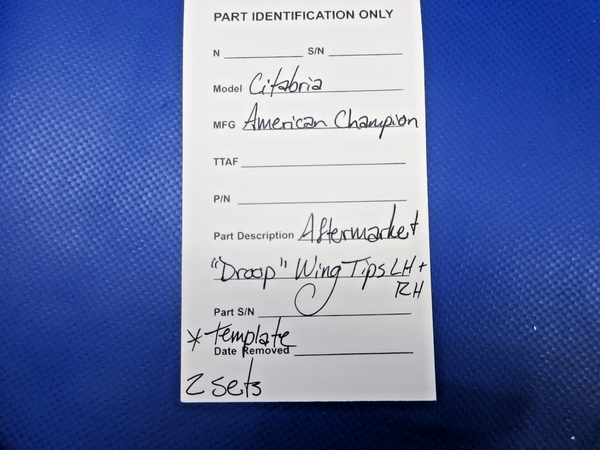 PART IDENTIFICATION ONLY
N S/N
Model Citabria
MFG American Champion
TTAF
P/N
Part Description Aftermarket
"Droop" Wing Tips LH +
RH
Part S/N
* template
Date Removed
2 sets